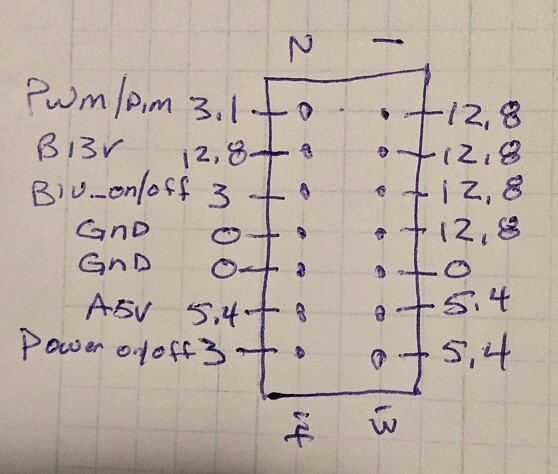 2 1
PWM/Dim 3,1 12,8
B13V 12,8 12,8
BLU_on/off 3 12,8
GND 0 12,8
GND 0 0
A5V 5,4 5,4
Power on/off 3 5,4
14 13